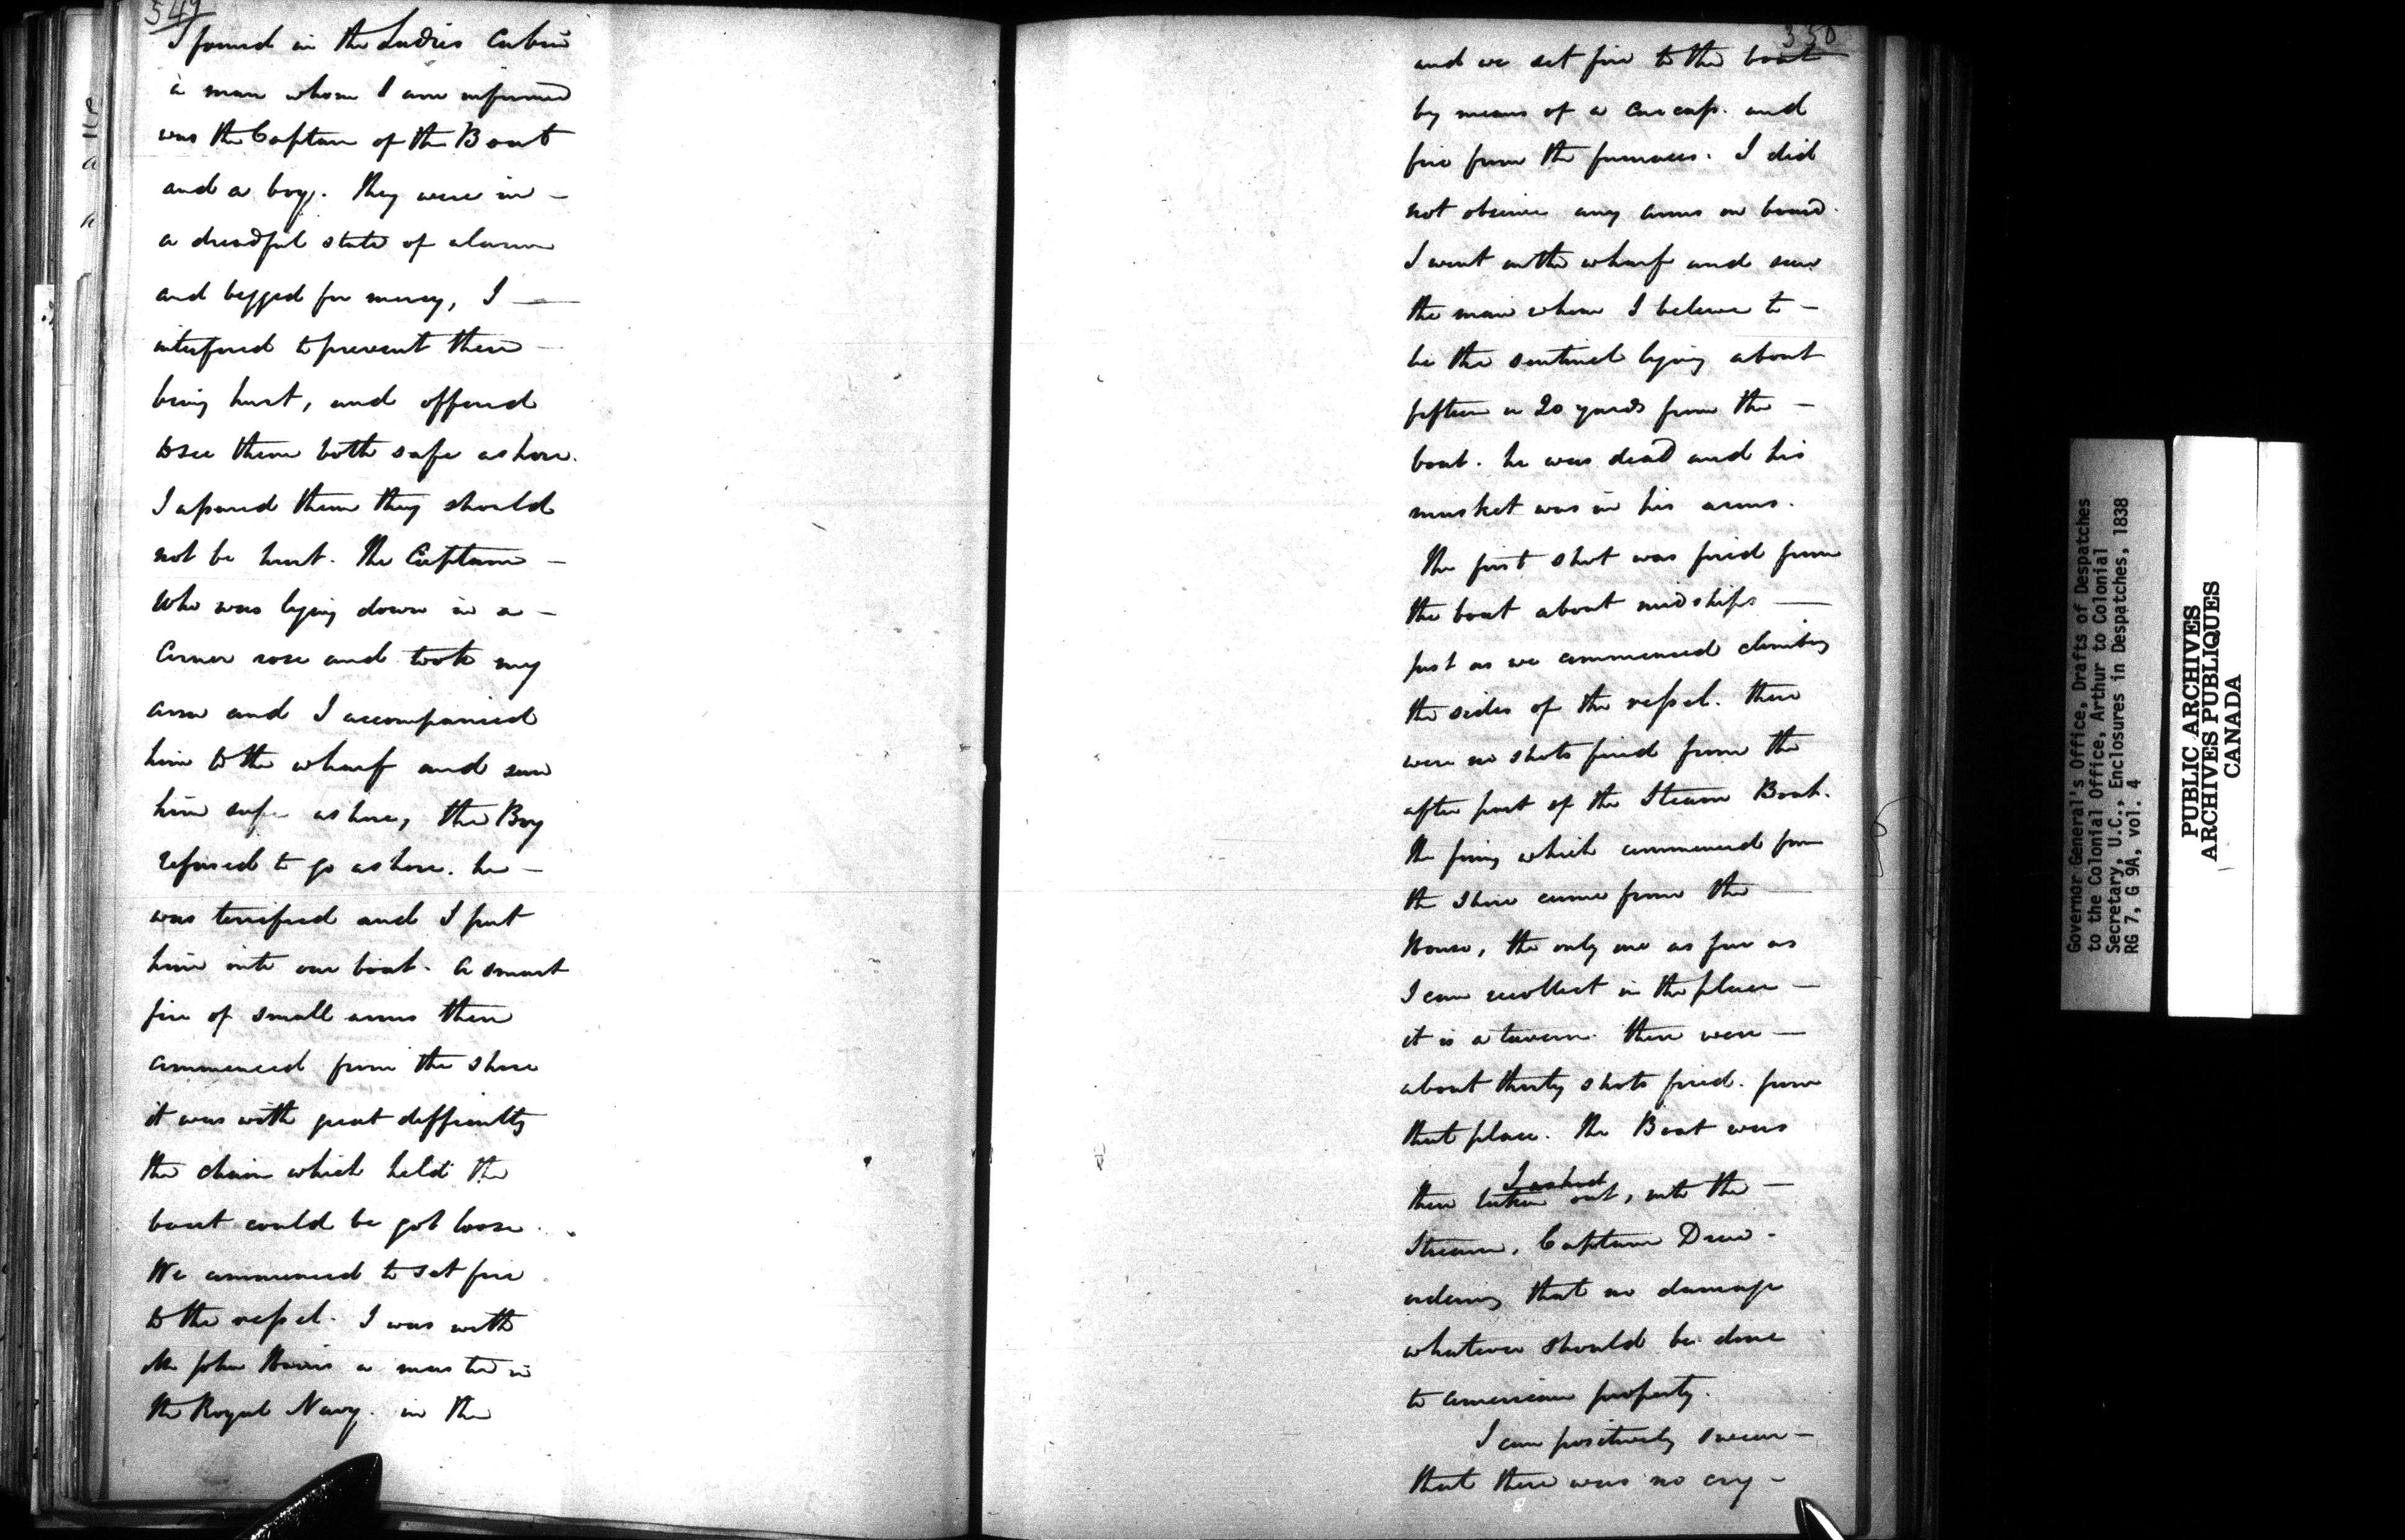 549
I found in the Ladies Cabin
a man whom I am informed
was the Captain of the Boat
and a boy. they were in –
a dreadful state of alarm
and begged for mercy, I —
interfered to prevent their –
being hurt, and offered
to see them both safe ashore.
I assured them they should
not be hurt. the Captain –
who was lying down in a –
corner rose and took my
arm and I accompanied
him to the wharf and saw
him safe ashore, the Boy
refused to go ashore. he –
was terrified and I put
him into our boat. a smart
fire of small arms then
commenced from the shore
it was with great difficulty
the chain which held the
boat could be got loose.
We commenced to set fire
to the vessel. I was with
Mr John Harris a master in
the Royal Navy. in the
350
and we set fire to the boat
by means of a carcass. and
fire from the furnaces. I did
not observe any arms on board.
I went on the wharf and saw
the man whom I believe to –
be the sentinel lying about
fifteen or 20 yards from the –
boat. he was dead and his
musket was in his arms.
The first shot was fired from
the boat about midships —
just as we commenced climbing
the sides of the vessel. there
were no shots fired from the
after part of the Steam Boat.
the firing which commenced from
the shore came from the —
House, the only one as far as
I can recollect in the place –
it is a tavern. there were –
about thirty shots fired. from
that place. the Boat was
then taken out, into the –
Stream, Captain Drew –
ordering that no damage
whatever should be done
to american property.
I can positively swear –
that there was no cry –
Governor General's Office, Drafts of Despatches
to the Colonial Office, Arthur to Colonial
Secretary, U.C., Enclosures in Despatches, 1838
RG 7, G 9A, vol. 4
PUBLIC ARCHIVES
ARCHIVES PUBLIQUES
CANADA